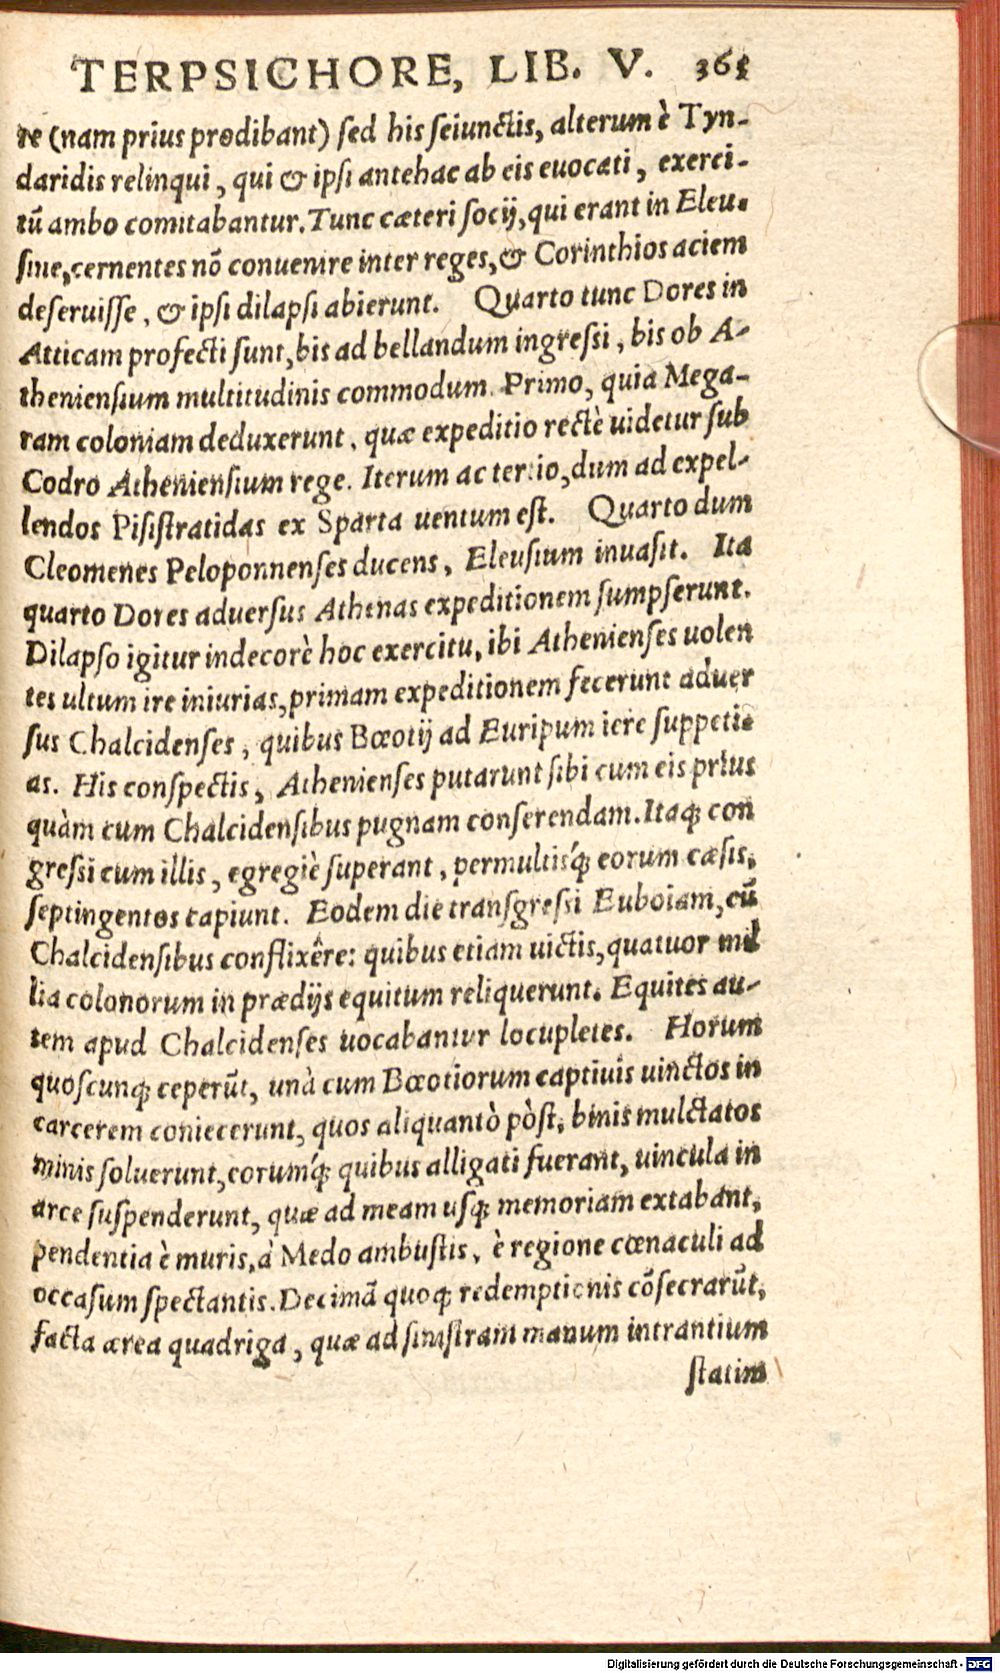 TERPSICHORE, LIB. V. 365
re (nam prius prodibant) ſed his ſeiunctis, alterum è Tyn-
daridis relinqui, qui & ipſi antehac ab eis euocati, exerci-
tũ ambo comitabantur. Tunc cæteri ſocij, qui erant in Eleu-
ſine, cernentes nõ conuenire inter reges, & Corinthios aciem
deſeruiſſe, & ipſi dilapſi abierunt. Quarto tunc Dores in
Atticam profecti ſunt, bis ad bellandum ingreſsi, bis ob A-
thenienſium multitudinis commodum. Primo, quia Mega-
ram coloniam deduxerunt, quæ expeditio rectè uidetur ſub
Codro Athenienſium rege. Iterum ac tertio, dum ad expel-
lendos Piſiſtratidas ex Sparta uentum eſt. Quarto dum
Cleomenes Peloponnenſes ducens, Eleuſium inuaſit. Ita
quarto Dores aduerſus Athenas expeditionem ſumpſerunt.
Dilapſo igitur indecorè hoc exercitu, ibi Athenienſes uolen
tes ultum ire iniurias, primam expeditionem fecerunt aduer
ſus Chalcidenſes, quibus Bœotij ad Euripum iere ſuppeti-
as. His conſpectis, Athenienſes putarunt ſibi cum eis prius
quàm cum Chalcidenſibus pugnam conſerendam. Itaq; con
greſsi cum illis, egregiè ſuperant, permultisq́; eorum cæſis,
ſeptingentos capiunt. Eodem die tranſgreſsi Euboiam, cũ
Chalcidenſibus conflixêre: quibus etiam uictis, quatuor mil
lia colonorum in prædijs equitum reliquerunt. Equites au-
tem apud Chalcidenſes uocabantur locupletes. Horum
quoſcunq; ceperũt, unà cum Bœotiorum captiuis uinctos in
carcerem coniecerunt, quos aliquantò pòſt, binis mulctatos
minis ſoluerunt, eorumq́; quibus alligati fuerant, uincula in
arce ſuſpenderunt, quæ ad meam uſq; memoriam extabant,
pendentia è muris, à Medo ambuſtis, è regione cœnaculi ad
occaſum ſpectantis. Decimã quoq; redemptionis cõſecrarũt,
facta ærea quadriga, quæ ad ſiniſtram manum intrantium
ſtatim
Digitalisierung gefördert durch die Deutsche Forschungsgemeinschaft - DFG